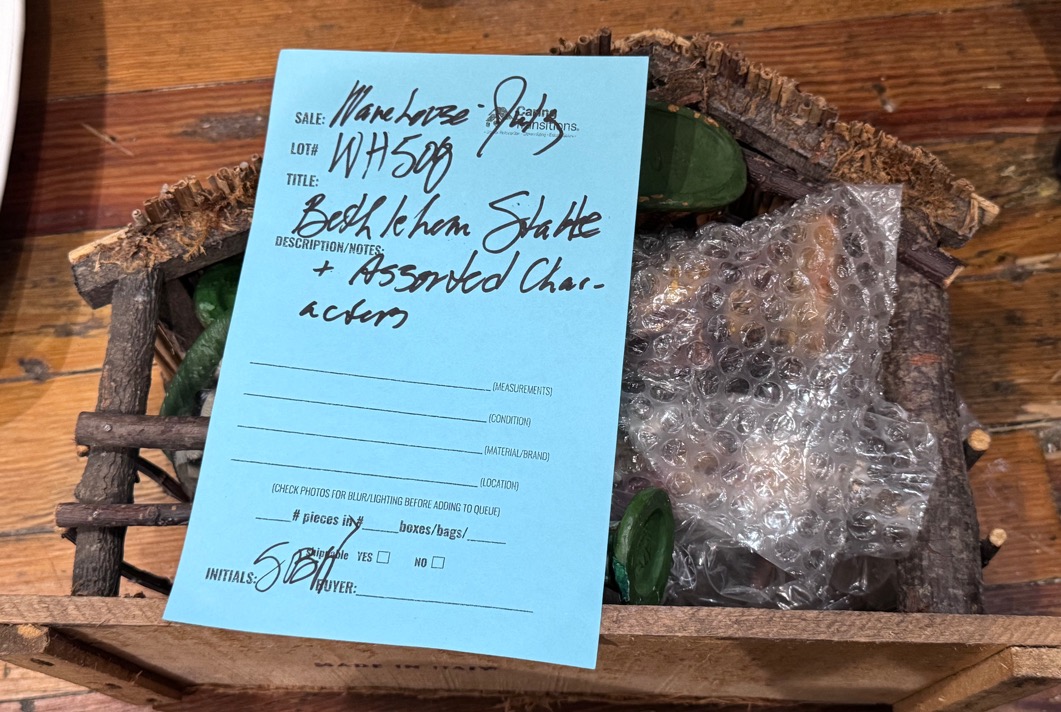 SALE: Warehouse - July
Caring
Transitions.
LOT# WH508
TITLE:
Bethlehem Stable
DESCRIPTION/NOTES:
+ Assorted Char-
acters
(MEASUREMENTS)
(CONDITION)
(MATERIAL/BRAND)
(LOCATION)
(CHECK PHOTOS FOR BLUR/LIGHTING BEFORE ADDING TO QUEUE)
# pieces in # boxes/bags/
Shippable YES NO
INITIALS:
BUYER:
MADE IN